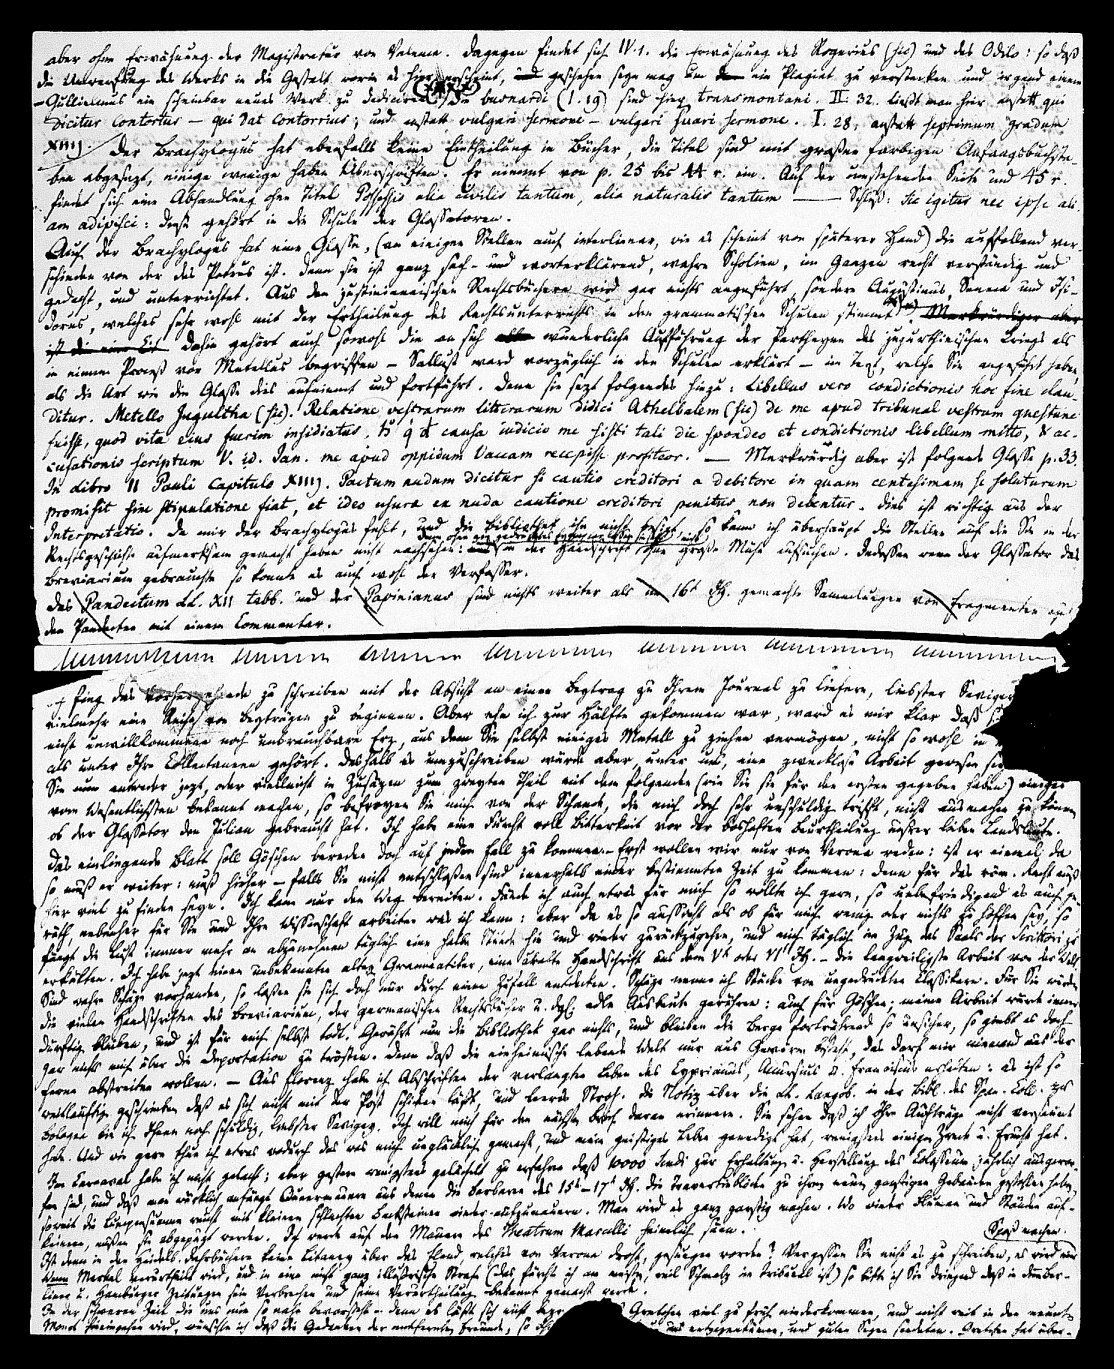 aber ohne Erwähnung der Magistratur von Valence. Dagegen findet sich IV.1. die Erwähnung des Rogerius (sic) und des Odilo: so daß
die Umwerfung des Werks in die Gestalt worin es hier erscheint, geschehen seyn mag um ein Plagiat zu verstecken und irgend einem
Guillielmus ein scheinbar neues Werk zu dediciren. In busnardi (I.19) sind hier transmontani. II. 32. ließt man hier anstatt qui
dicitur contortus — qui dat contorrius; und anstatt vulgari sermone — vulgari suari sermone. I. 28, anstatt septimum gradum
XIIIJ. Der Brachylogus hat ebenfalls keine Eintheilung in Bücher, die Titel sind mit großen farbigen Anfangsbuchsta-
ben abgesezt, einige wenige haben Überschriften. Er nimmt von p. 25 bis 44 r. ein. Auf der umstehenden Seite und 45 r.
findet sich eine Abhandlung ohne Titel Possessio alia civilis tantum, alia naturalis tantum —— Schluß: sic igitur nec ipse ali
am adipisci: diese gehört in die Schule der Glossatoren.
Auch der Brachylogus hat eine Glosse, (an einigen Stellen auch interlinear, wie es scheint von späterer Hand) die auffallend ver-
schieden von der des Petrus ist. Denn sie ist ganz sach- und worterklärend, wahre Scholien, im Ganzen recht verständig und
gedacht, und unterrichtet. Aus den justinianeischen Rechtsbüchern wird gar nichts angeführt, sondern Augustinus, Seneca und Isi-
dorus, welches sehr wohl mit der Ertheilung des Rechtsunterrichts in den grammatischen Schulen stimmt. Merkwürdiger aber
ist die eine Dahin gehört auch sowohl die an sich wunderliche Aufführung der Parthegen des jugurthinischen Kriegs als
in einem Proceß von Metellus begriffen — Sallust ward vorzüglich in den Schulen erklärt — im Text, welche Sie angeführt haben,
als die Art wie die Glosse dies aufnimmt und fortführt. Denn sie sezt folgendes hinzu: Libellus vero condictionis hoc fine clau-
ditur. Metello Jugultha (sic). Relatione vestrarum litterarum didici Athelbalem (sic) de me apud tribunal vestrum questum
fuisse, quod vita eius fuerim insidiatus. causa iudicio me sisti tali die spondeo et condictionis libellum mitto, & ac-
cusationis scriptum V. id. Jan. me apud oppidum Vaccam recepisse profiteor. — Merkwürdig aber ist folgende Glosse p. 33.
In Libro II Pauli Capitulo XIIIJ. Pactum nudum dicitur si cautio creditori a debitore in quam centesimam se soluturum
promisit sine stipulatione fiat, et ideo usura ex nuda cautione creditori penitus non debentur. Dies ist richtig aus der
Interpretatio. Da mir der Brachylogus fehlt, und die Bibliothek ihn nicht besizt, so kann ich überhaupt die Stellen auf die Sie in der
Rechtsgeschichte aufmerksam gemacht haben nicht nachsehen: in der Handschrift ohne große Mühe aufsuchen. Indessen wenn der Glossator das
Breviarium gebrauchte so konnte es auch wohl der Verfasser.
Das Pandectum LL. XII tabb. und der Papinianus sind nichts weiter als im 16t Jh. gemachte Sammlungen von Fragmenten aus
den Pandecten mit einem Commentar.
fing das vorhergehende zu schreiben mit der Absicht an einen Beytrag zu Ihrem Journal zu liefern, liebster Savigny
vielmehr eine Reihe von Beyträgen zu beginnen. Aber ehe ich zur Hälfte gekommen war, ward es mir klar daß
nicht unwillkommene noch unbrauchbare Erz, aus dem Sie selbst einiges Metall zu ziehen vermögen, nicht so wohl in
als unter Ihre Collectaneen gehört. Deshalb es umzuschreiben würde aber, unter uns, eine zwecklose Arbeit gewesen
Sie nun entweder jezt, oder vielleicht in Zusäzen zum zweyten Theil mit dem folgenden (wie Sie sie für den ersten gegeben haben) einiges
vom Wesentlichsten bekannt machen, so befreyen Sie mich von der Schande, die mich doch sehr unschuldig trifft, nicht ausmachen zu können
ob der Glossator den Julian gebraucht hat. Ich habe eine Furcht voll Bitterkeit vor der boshaften Beurtheilung unsrer lieben Landsleute.
Das einliegende Blatt soll Göschen bereden doch auf jeden Fall zu kommen. Erst wollen wir nur von Verona reden: ist er einmal da
so muß er weiter: muß hieher — falls Sie nicht entschlossen sind innerhalb einer bestimmten Zeit zu kommen: denn für das röm. Recht muß
hier viel zu finden seyn. Ich kann nur den Weg bereiten. Fände ich auch etwas für mich so wollte ich gern, so unbefriedigend es auch
nebenher für Sie und Ihre Wissenschaft arbeiten was ich kann: aber da es so aussieht als ob für mich wenig oder nichts zu hoffen sey, so
fängt die Lust immer mehr an abzunehmen täglich eine halbe Stunde hin und wieder zurückzugehen, und mich täglich im Zug des Saals der Scrittori zu
erkälten. Ich habe jezt einen unbekannten alten Grammatiker, eine uralte Handschrift aus dem Vt oder VIt Jh. — die langweiligste Arbeit von der Welt
Sind wahre Schäze vorhanden, so lassen sie sich doch nur durch einen Zufall entdecken. Schäze nenne ich Stücke von ungedruckten Classikern. Für Sie würden
die vielen Handschriften des Breviarium, der germanischen Rechtsbücher u. dgl. edle Ausbeute gewähren: auch für Göschen: meine Arbeit würde immer
dürftig bleiben, und ist für mich selbst todt. Gewährt nun die Bibliothek gar nichts, und bleiben die Berge fortwährend so unsicher, so giebt es doch
gar nichts mich über die Deportation zu trösten. Denn daß die einheimische lebende Welt nur aus Gewürm besteht, das darf mir niemand aus der
Ferne abstreiten wollen. — Aus Florenz habe ich Abschriften der verlangten Leben des Cyprianus, Accursius u. Franciscus erhalten: es ist so
weitläuftig geschrieben daß es sich nicht mit der Post schicken läßt, und leeres Stroh. die Notiz über die LL. Langob. in der Bibl. des Span. Coll. zu
Bologna bin ich Ihnen noch schuldig, liebster Savigny. Ich will mich für den nächsten Brief daran erinnern. Sie sehen daß ich Ihre Aufträge nicht versäumt
habe. Und wie gern thue ich etwas wodurch das was mich unglücklich gemacht, und mein geistiges Leben geendigt hat, wenigstens einigen Zweck u. Frucht hat.
Im Carneval habe ich nicht gelacht; aber gestern wenigstens gelächelt zu erfahren daß 10000 Scudi zur Erhaltung u. Herstellung des Colosseum jährlich ausgewor-
fen sind, und daß man wirklich anfängt Quermauern aus denen die Barbaren des 15t–17t Jh. die Travertinblöcke zu ihren neuen garstigen Gebäuden gestohlen haben,
soweit die Lumpensumme reicht mit kleinen schlechten Backsteinen wieder aufzumauern. Man wird es ganz garstig machen. Wo wieder Blumen und Stauden auf-
keimen, müssen sie abgesägt werden. Ich werde auf den Mauern des Theatrum Marcelli heimlich säen. Spaß machen.
Ist denn in den Heidelb. Jahrbüchern keine Litaney über das Elend welches von Verona droht, gesungen worden? Vergessen Sie nicht es zu schreiben, es wird mir
Wenn Merkel verurtheilt wird, und in eine nicht ganz illusorische Strafe (das fürcht ich am meisten, weil Schmalz im Tribunal ist) so bitte ich Sie dringend daß in den Ber-
liner u. Hamburger Zeitungen sein Verbrechen und seine Verurtheilung bekannt gemacht werde.
In der schweren Zeit die uns nun so nahe bevorsteht — denn es läßt sich nicht Gretchen viel zu früh niederkommen, und nicht weit in den neunten
Monat hineingehen wird, wünschte ich daß die Gedanken der entfernten Freunde, so uns entgegenkämen, und guten Segen sendeten. Gretchen hat über-